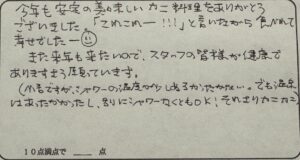 今年も安定の美味しいカニ料理をありがとう
ございました 「うめこめー!!!」と言いながら食べれて
幸せでしたー
また来年も来たいので、スタッフの皆様が健康で
ありますよう願っています。
シャワーの温度が少し
でも温泉
はあったかかったし、別にシャワーなくともOK! それよりカニカニ
10点満点で 点